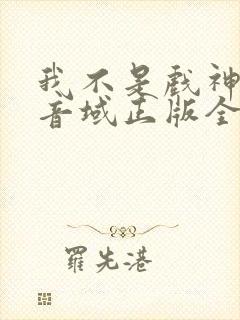 我不是戏神
音域正版全
羅先港